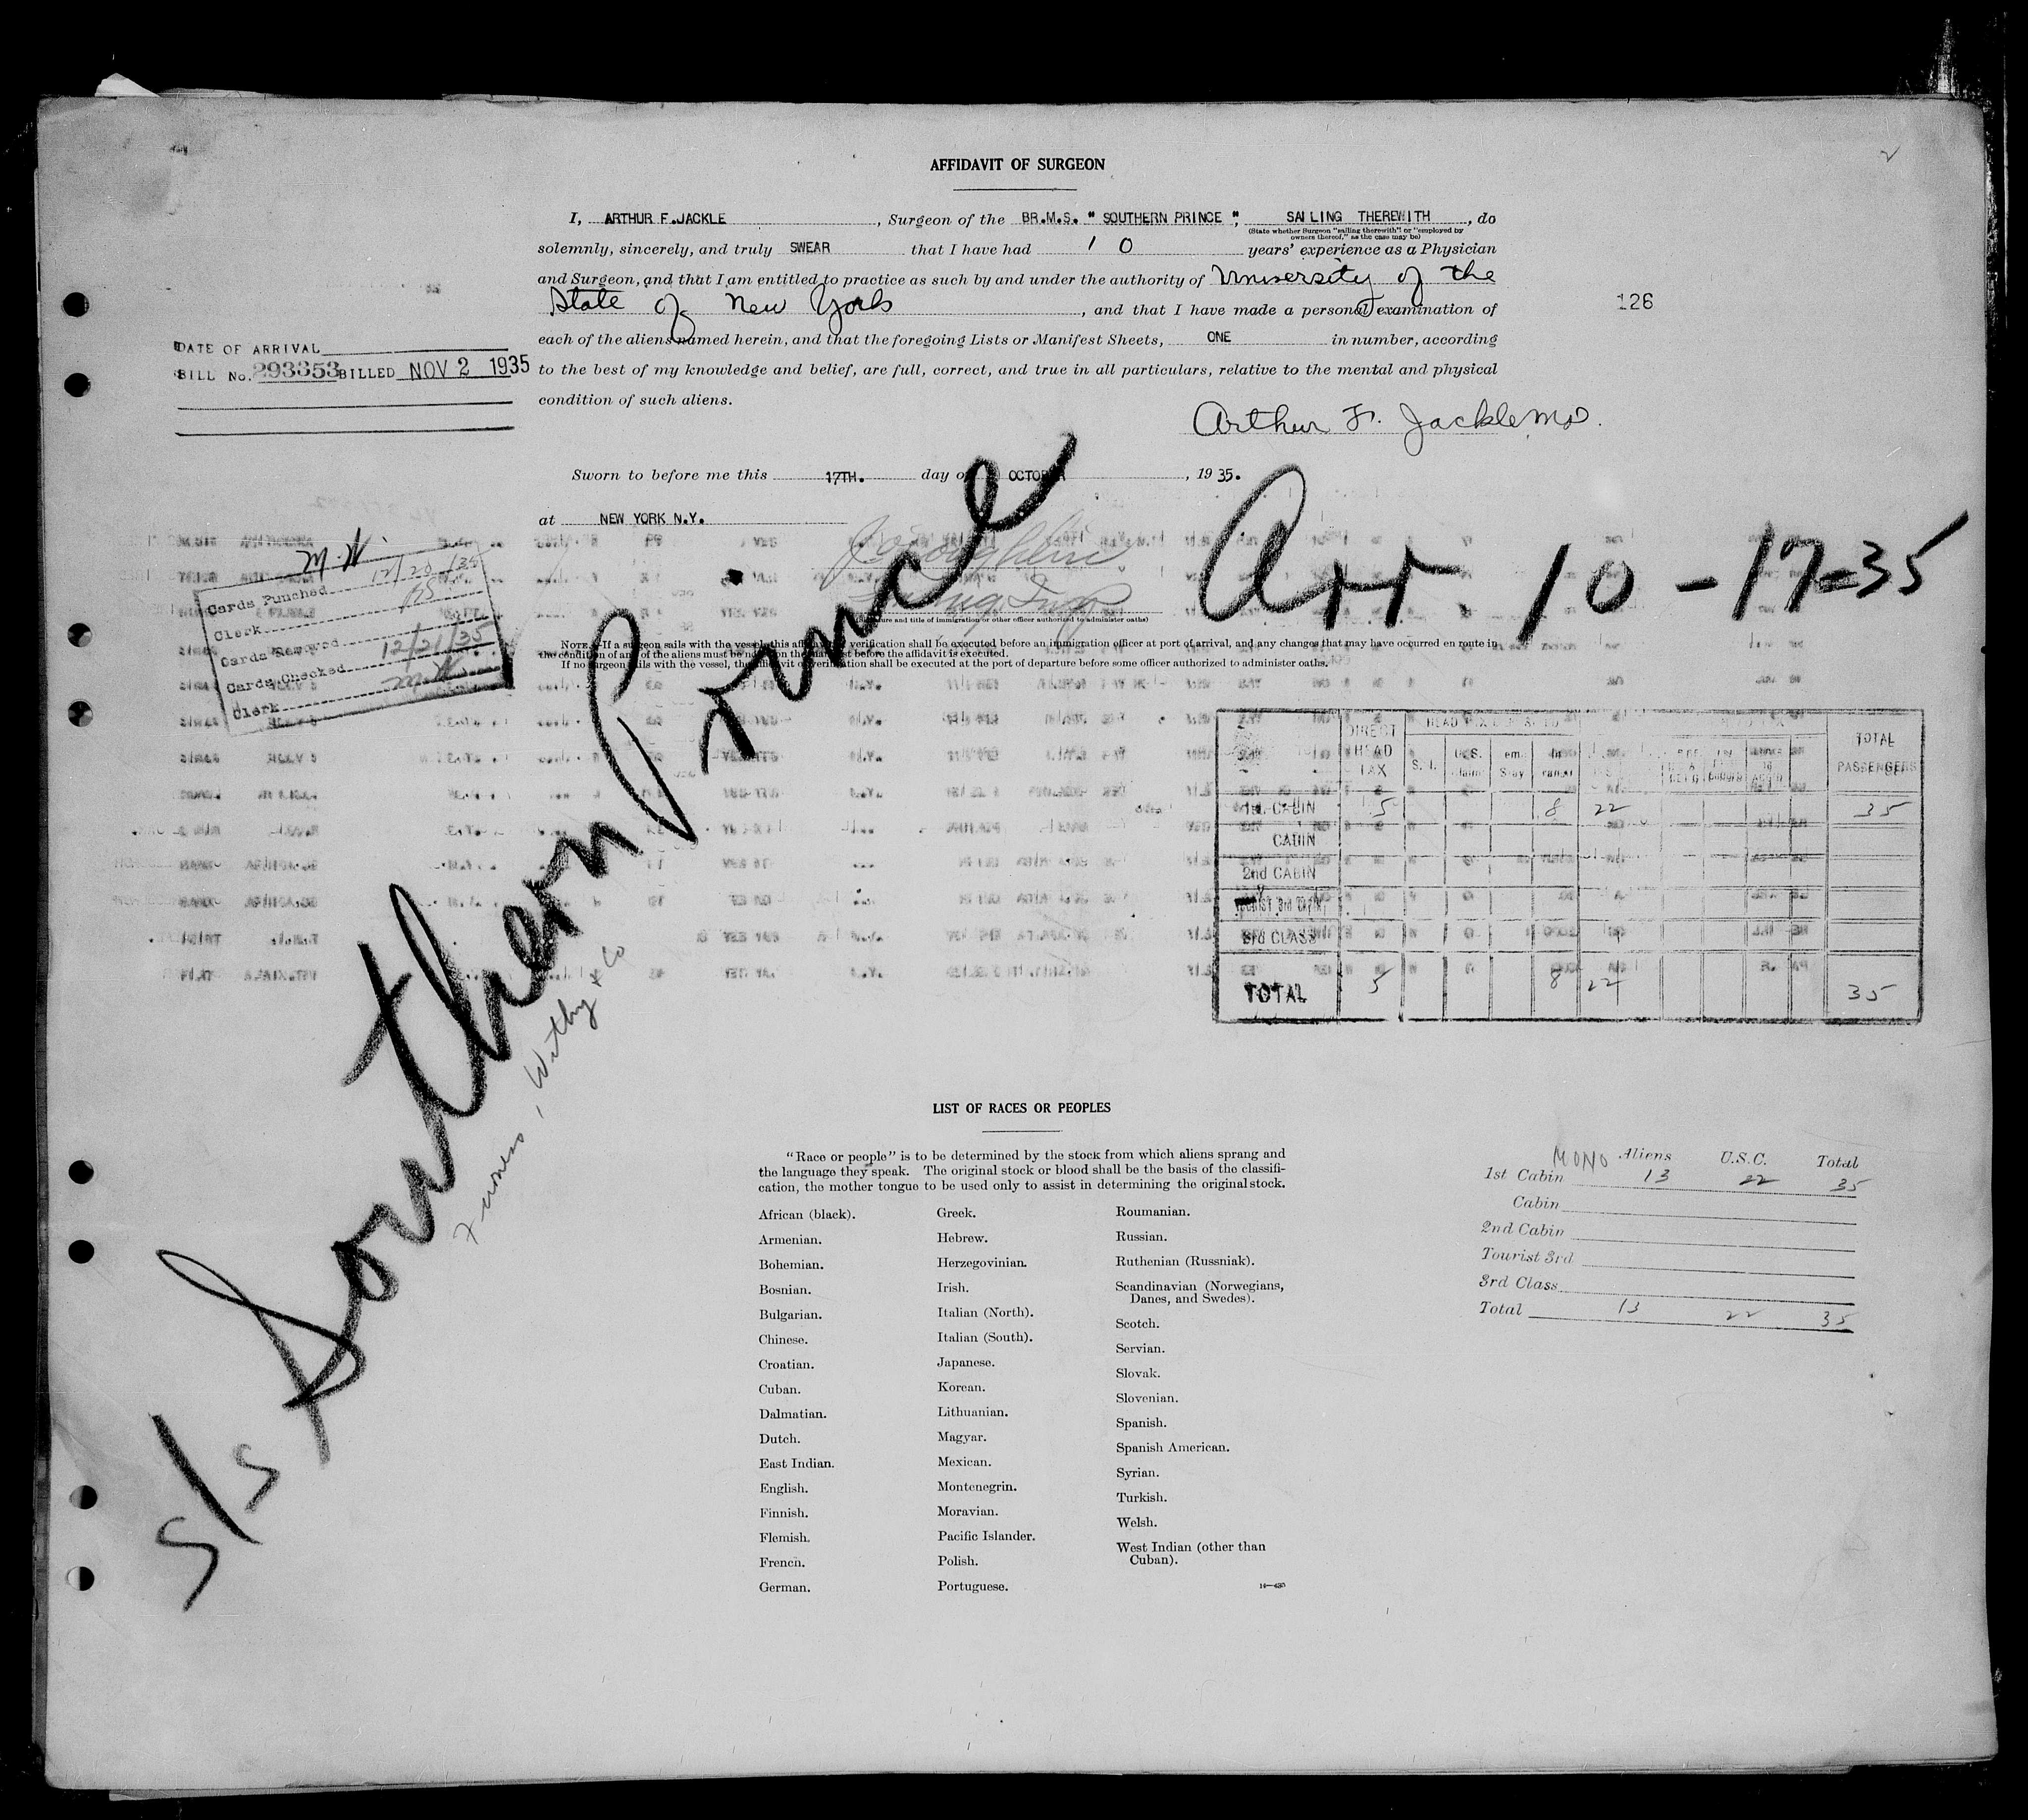 AFFIDAVIT OF SURGEON
I, ARTHUR F. JACKLE, Surgeon of the BR.M.S. "SOUTHERN PRINCE", SAILING THEREWITH, do
(State whether Surgeon "sailing therewith" or "employed by
owners thereof," as the case may be)
solemnly, sincerely, and truly SWEAR that I have had 10 years' experience as a Physician
and Surgeon, and that I am entitled to practice as such by and under the authority of University of the
State of New York, and that I have made a personal examination of
126
each of the aliens named herein, and that the foregoing Lists or Manifest Sheets, ONE in number, according
to the best of my knowledge and belief, are full, correct, and true in all particulars, relative to the mental and physical
condition of such aliens.
DATE OF ARRIVAL
BILL No. 293353 BILLED NOV 2 1935
Arthur F. Jackle MD.
Sworn to before me this 17TH. day of OCTOBER, 1935.
at NEW YORK N.Y.
Arr. 10-17-35
M.W.
Cards Punched 12/20/35
Clerk
Cards Removed
Cards Checked 12/21/35
Clerk M.W.
(Signature and title of immigration or other officer authorized to administer oaths)
NOTE.—If a surgeon sails with the vessel, this affidavit of verification shall be executed before an immigration officer at port of arrival, and any changes that may have occurred en route in
the condition of any of the aliens must be noted on the manifest before the affidavit is executed.
If no surgeon sails with the vessel, the affidavit of verification shall be executed at the port of departure before some officer authorized to administer oaths.
S/S Southern Prince
Furness, Withy & Co
DIRECT HEAD TAX
S. I.
U.S.
TOTAL PASSENGERS
1st. CABIN 5 8 22 35
CABIN
2nd CABIN
TOURIST 3rd CABIN
3rd CLASS
TOTAL 5 8 22 35
LIST OF RACES OR PEOPLES
"Race or people" is to be determined by the stock from which aliens sprang and
the language they speak. The original stock or blood shall be the basis of the classifi-
cation, the mother tongue to be used only to assist in determining the original stock.
African (black).
Armenian.
Bohemian.
Bosnian.
Bulgarian.
Chinese.
Croatian.
Cuban.
Dalmatian.
Dutch.
East Indian.
English.
Finnish.
Flemish.
French.
German.
Greek.
Hebrew.
Herzegovinian.
Irish.
Italian (North).
Italian (South).
Japanese.
Korean.
Lithuanian.
Magyar.
Mexican.
Montenegrin.
Moravian.
Pacific Islander.
Polish.
Portuguese.
Roumanian.
Russian.
Ruthenian (Russniak).
Scandinavian (Norwegians,
Danes, and Swedes).
Scotch.
Servian.
Slovak.
Slovenian.
Spanish.
Spanish American.
Syrian.
Turkish.
Welsh.
West Indian (other than
Cuban).
MONO Aliens U.S.C. Total
1st Cabin 13 22 35
Cabin
2nd Cabin
Tourist 3rd
3rd Class
Total 13 22 35